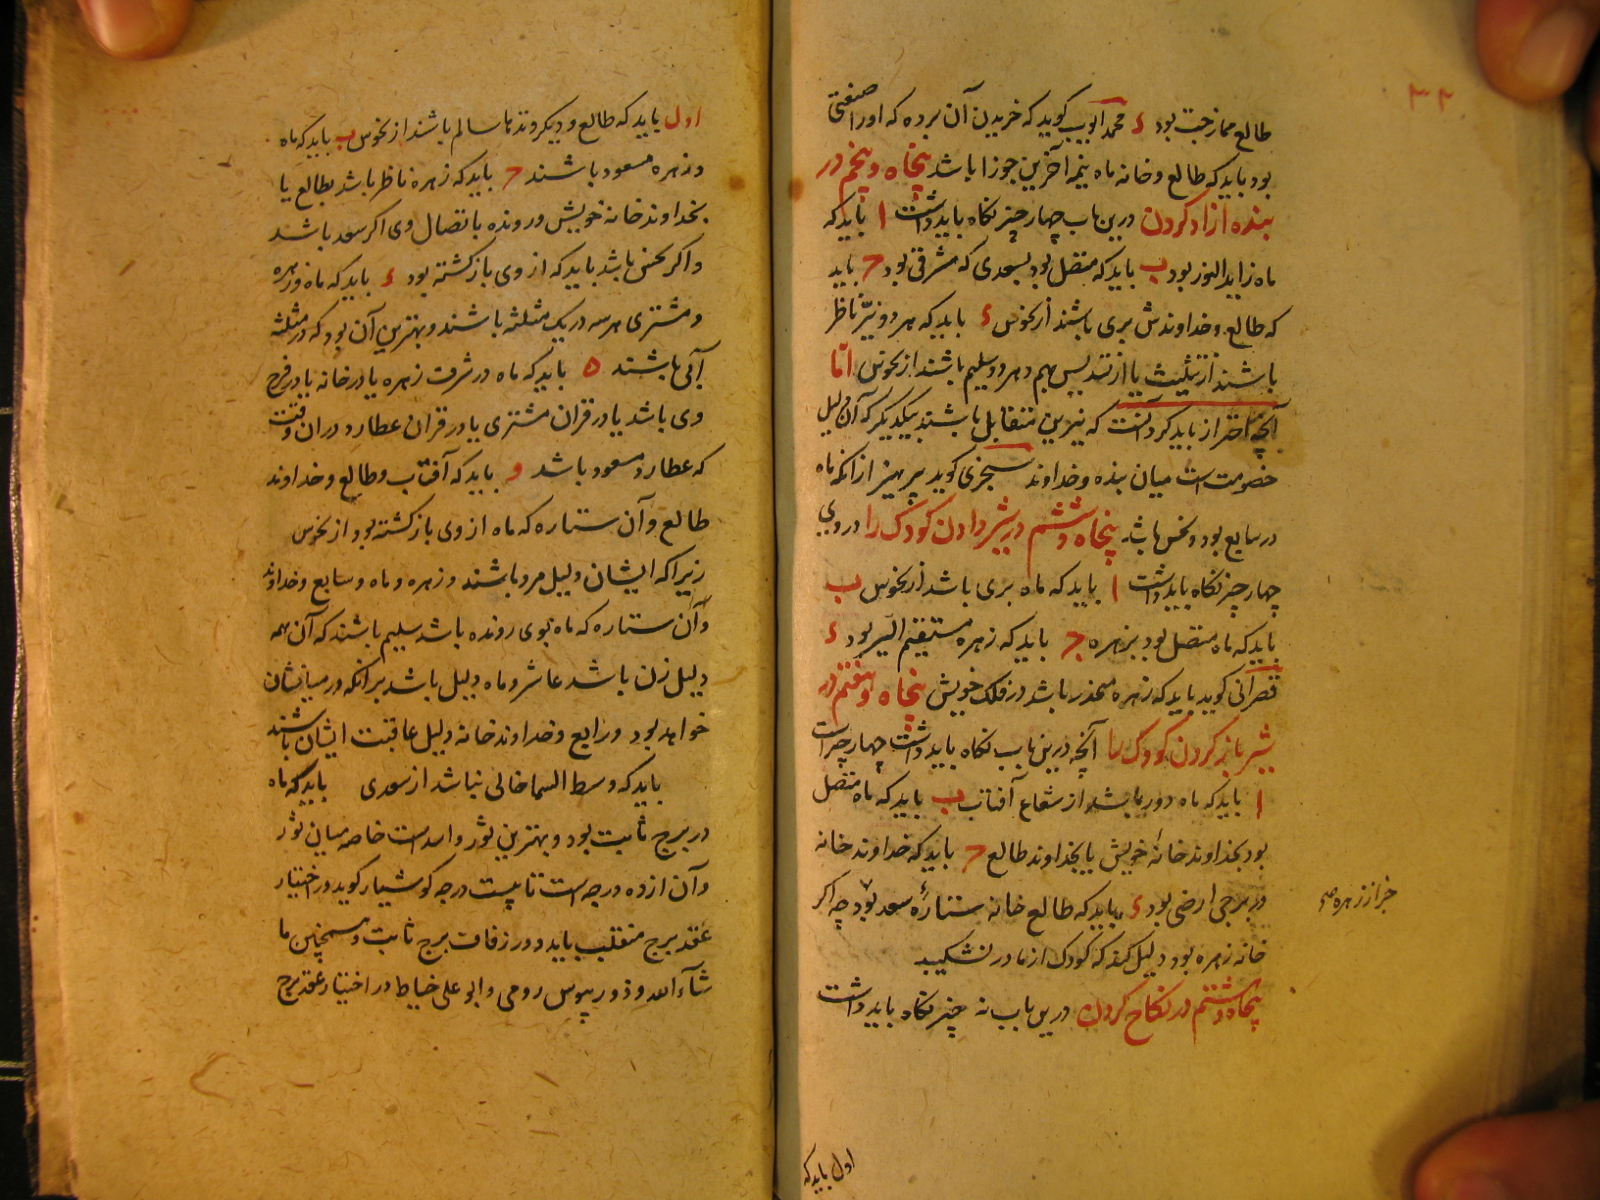 ۳۲
طالع ممازجت بود ء محمد ایوب کوید که خریدن آن برده که او را صنعتی
بود باید که طالع و خانه ماه نیمه آخرین جوزا باشد پنجاه و پنجم در
بنده ازاد کردن درین باب چهار چیز نکاه باید داشت ا باید که
ماه زاید النور بود ب باید که متصل بود بسعدی که مشرقی بود ج باید
که طالع و خداوندش بری باشند از نحوس ء باید که هر دو نیّر ناظر
باشند از تثلیث یا از تسدیس بهم و هر دو سلیم باشند از نحوس امّا
آنچه احتراز باید کرد آنست که نیرین متقابل باشند بیکدیگر که آن دلیل
خصومت است میان بنده و خداوند سجزی کوید پرهیز از انکه ماه
در سابع بود و نحس باشد پنجاه و ششم در شیر دادن کودک را در وی
چهار چیز نکاه باید داشت ا باید که ماه بری باشد از نحوس ب
باید که ماه متصل بود بزهره ج باید که زهره مستقیم السیر بود ء
قصرانی کوید باید که زهره منحدر باشد در فلک خویش پنجاه و هفتم در
شیر باز کردن کودک را آنچه درین باب نکاه باید داشت چهار چیز است
ا باید که ماه دور باشد از شعاع آفتاب ب باید که ماه متصل
بود بخداوند خانهٔ خویش یا بخداوند طالع ج باید که خداوند خانه
در برجی ارضی بود ء باید که طالع خانه ستارهٔ سعد بود چه اکر
جز از زهره صح
خانه زهره بود دلیل کند که کودک از مادر نشکیبد
پنجاه و هشتم در نکاح کردن درین باب نه چیز نکاه باید داشت
اول باید که
اول باید که طالع و دیکر وتدها سالم باشند از نحوس ب باید که ماه
و زهره مسعود باشند ج باید که زهره ناظر باشد بطالع یا
بخداوند خانه خویش و رونده باتصال وی اکر سعد باشد
و اکر نحس باشد باید که از وی بازکشته بود ء باید که ماه و زهره
و مشتری هر سه در یک مثلثه باشند و بهترین آن بود که در مثلثه
آبی باشند ه باید که ماه در شرف زهره یا در خانه یا در فرح
وی باشد یا در قران مشتری یا در قران عطارد در ان وقت
که عطارد مسعود باشد و باید که آفتاب و طالع و خداوند
طالع و آن ستاره که ماه از وی بازکشته بود از نحوس
زیرا که ایشان دلیل مرد باشند و زهره و ماه و سابع و خداوند
و آن ستاره که ماه بوی رونده باشد سلیم باشند که آن همه
دلیل زن باشد عاشر و ماه دلیل باشد بر انکه در میانشان
خواهد بود و رابع و خداوند خانه دلیل عاقبت ایشان باشند
باید که وسط السما خالی نباشد از سعدی باید که ماه
در برج ثابت بود و بهترین ثور و اسد است خاصه میان ثور
و آن از ده درجه است تا بیست درجه کوشیار کوید در اختیار
عقد برج منقلب باید و در زفاف برج ثابت و همچنین ما
شآء الله و ذورییوس رومی و ابو علی خیاط در اختیار عقد برج